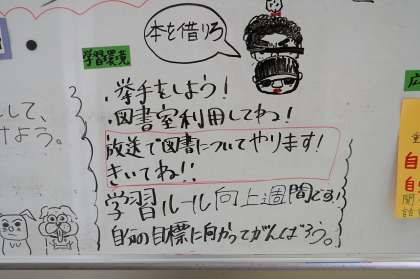 本を借りろ
学習環境
・挙手をしよう!
・図書室利用してねっ!
放送で図書についてやります!
きいてね!!
学習ルール向上週間です!
自分の目標に向かってがんばろう。
して、
けよう。
広
自
自